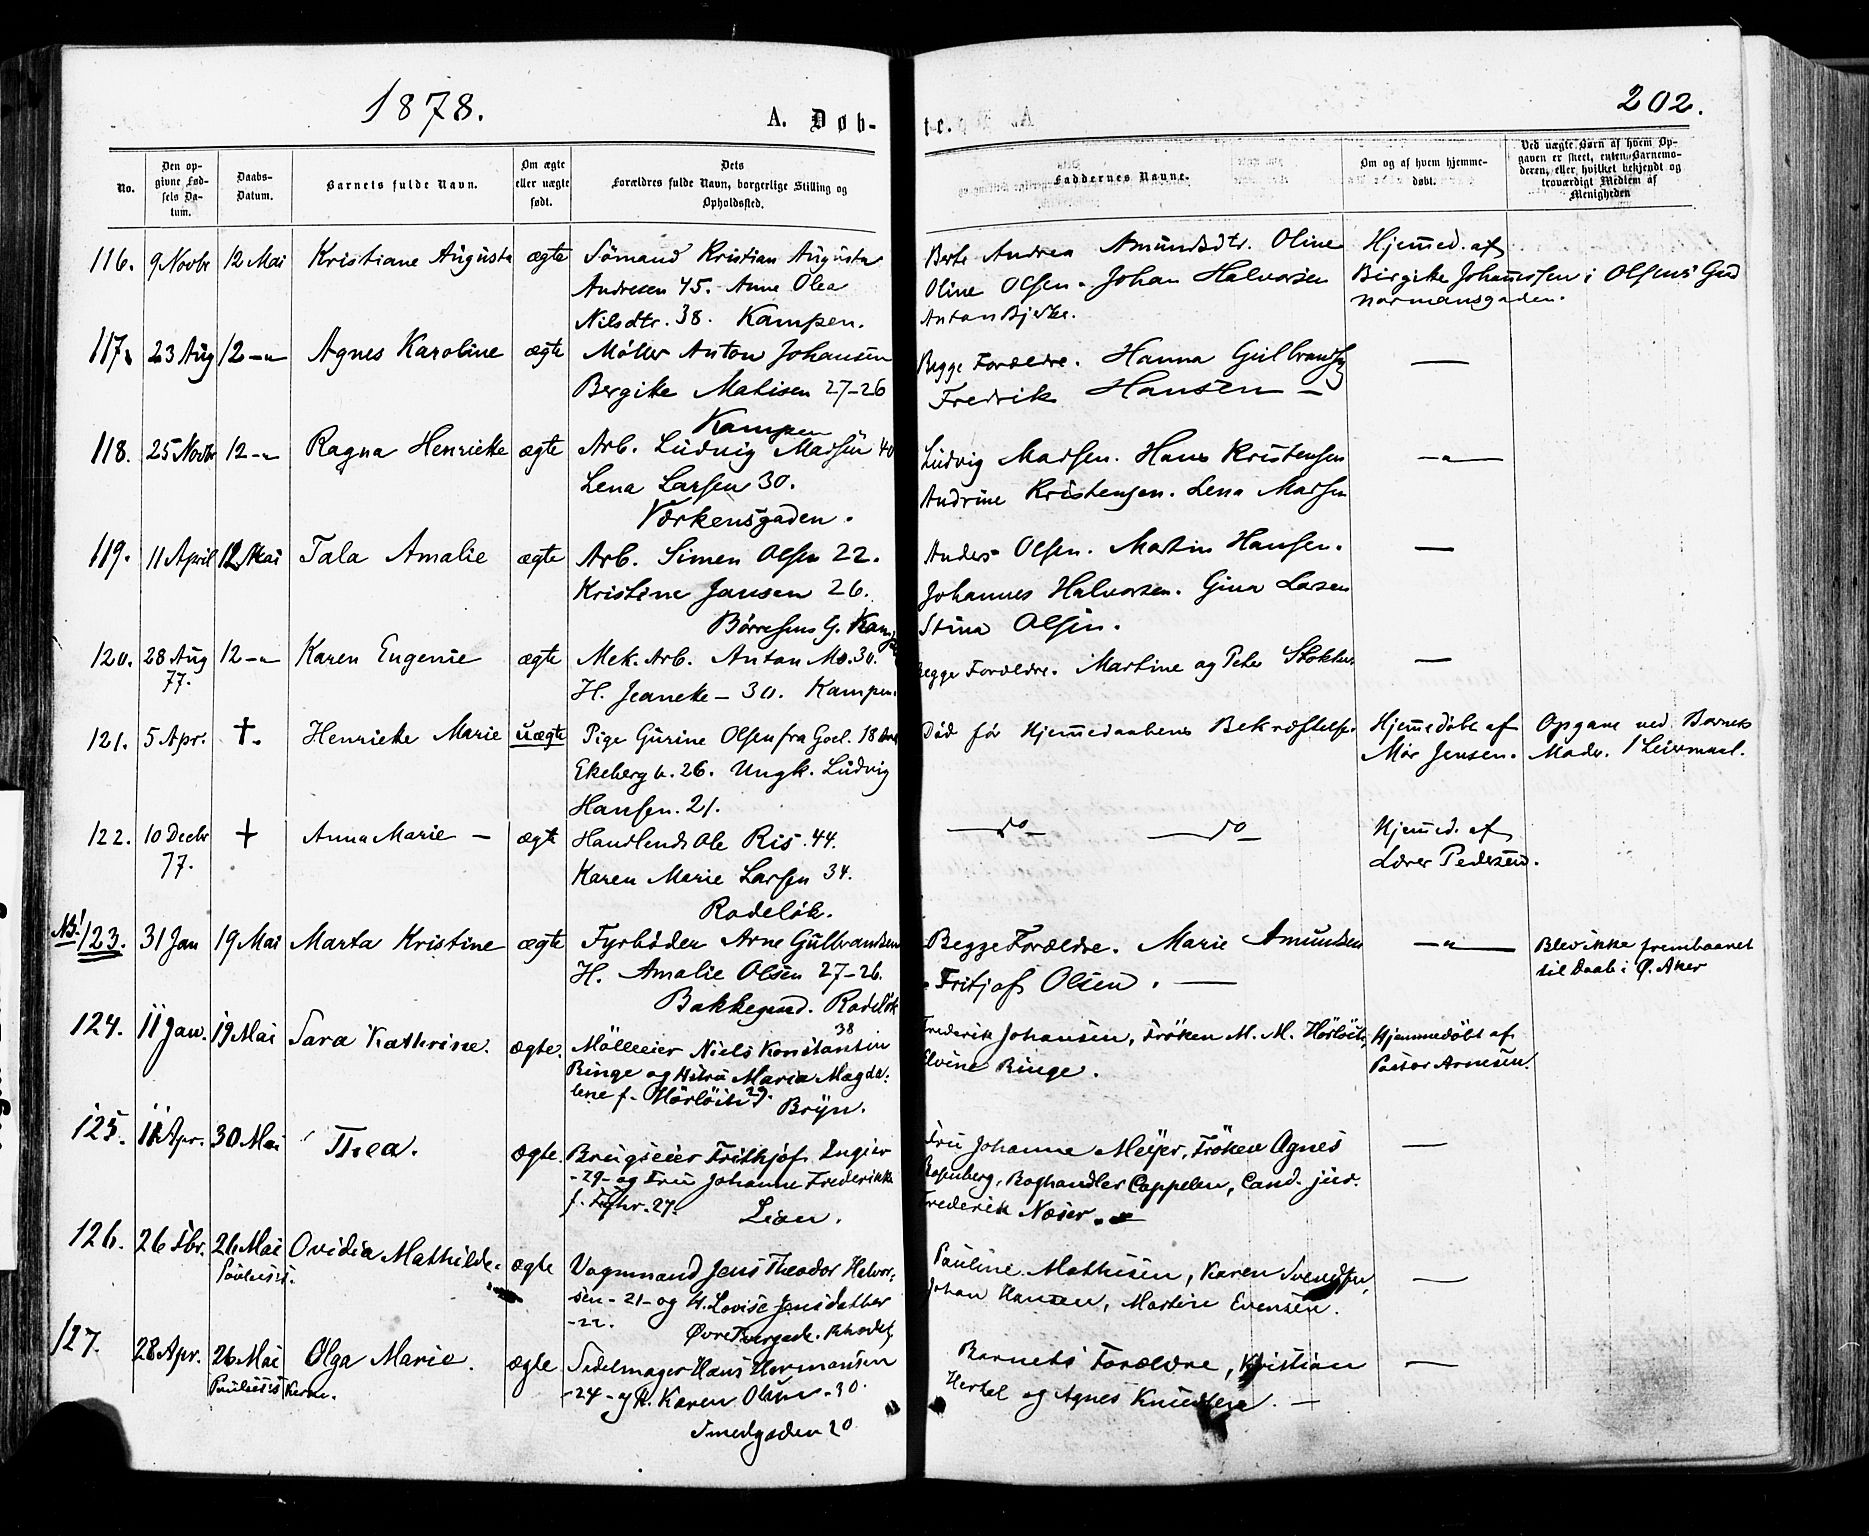 1878.
A. Døb-
te.
202.
No.
Den op-
givne Fød-
sels Da-
tum.
Daabs-
Datum.
Barnets fulde Navn.
Om ægte
eller uægte
født.
Dets
Forældres fulde Navn, borgerlige Stilling og
Opholdssted.
Faddernes Navne.
Om og af hvem hjemme-
døbt.
Ved uægte Børn af hvem Op-
gaven er skeet, enten Barnemo-
deren, eller hvilket bekjendt og
troværdigt Medlem af
Menigheden
116. 9 Novbr 12 Mai Kristiane Augusta ægte Sömand Kristian August
Andresen 45. Anne Olea
Nilsdtr. 38. Kampen.
Berte Andrea Amundsdtr. Oline
Oline Olsen. Johan Halvorsen
Anton Bjerke.
Hjemmed. af
Birgitte Johannessen i Olsens Gd
Normansgaden.
117. 23 Aug 12 -"- Agnes Karoline ægte Møller Anton Johansen
Bergitte Matisen 27-26
Kampen
Begge Forældre. Hanna Gulbrandsen
Fredrik Hansen —
—
118. 25 Novbr 12 -"- Ragna Henriette ægte Arb. Ludvig Madsen 40
Lena Larsen 30.
Værkensgaden.
Ludvig Madsen. Hans Kristensen
Andrine Kristensen. Lena Madsen
—"—
119. 11 April 12 Mai Tala Amalie ægte Arb. Simen Olsen 22.
Kristine Jansen 26.
Børresens G. Kampen
Anders Olsen. Martin Hansen.
Johannes Halvorsen. Gina Larsen
Stina Olsen.
—
120. 28 Aug 12 -"- Karen Eugenie ægte Mek. Arb. Anton Mo. 30.
77.
H. Jeanette - 30. Kampen.
Begge Forældre. Martine og Peter
—
121. 5 Apr. †. Henriette Marie uægte Pige Gurine Olsen fra
Ekeberg b. 26. Ungk. Ludvig
Hansen. 21.
Död før Hjemmedaabens Bekræftelse.
Hjemmedöbt af
Mor Jensen.
Opgave ved Barnets
Moder. 1 Leiermaal.
122. 10 Decbr † Anna Marie — ægte Handlende Ole Ris. 44.
77.
Karen Marie Larsen 34.
Rodeløk.
—do— —do—
Hjemmed. af
Lærer Pedersen.
NB! 123. 31 Jan 19 Mai Marta Kristine ægte Fyrbøder Arne Gulbrandsen
H. Amalie Olsen 27-26.
Bakkegund. Rodeløk
Begge Forældre. Marie Amundsen
Fritjof Olsen. —
—"—
Blev ikke frembaaret
til Daab i Ø. Aker
124. 11 Jan. 19 Mai Sara Kathrine. ægte. Mölleeier Niels Konstantin 38
Ringe og Hstru Maria Magda-
lene f. 29. Bryn.
Frederik Johansen, Fröken M. M.
Elvine Ringe.
Hjemmedöbt af
Pastor Arnesen.
125. 11 Apr. 30 Mai Thea. ægte. Brugseier Frithjof Ingier
-29- og Fru Johanne Frederikke
f. -27. Lian.
Fru Johanne Meyer, Fröken Agnes
Rosenberg, Boghandler Cappelen, Cand. jur.
Frederik Næser.
—
126. 26 Fbr. 26 Mai Ovidia Mathilde. ægte Vognmand Jens Theodor Halvor-
Paulus's.
sen -21- og H. Lovise Jensdatter
-22. Øvre
Pauline Mathisen, Karen Svendsen,
Johan Hansen, Martin Evensen.
—
127. 28 Apr. 26 Mai Olga Marie. ægte Sadelmager Hans Hermansen
Paulus's Kirke.
-24- og H. Karen Olsen -30.
Smedgaden 20
Barnets Forældre, Kristian
Hertel og Agnes Knudsen. —
—